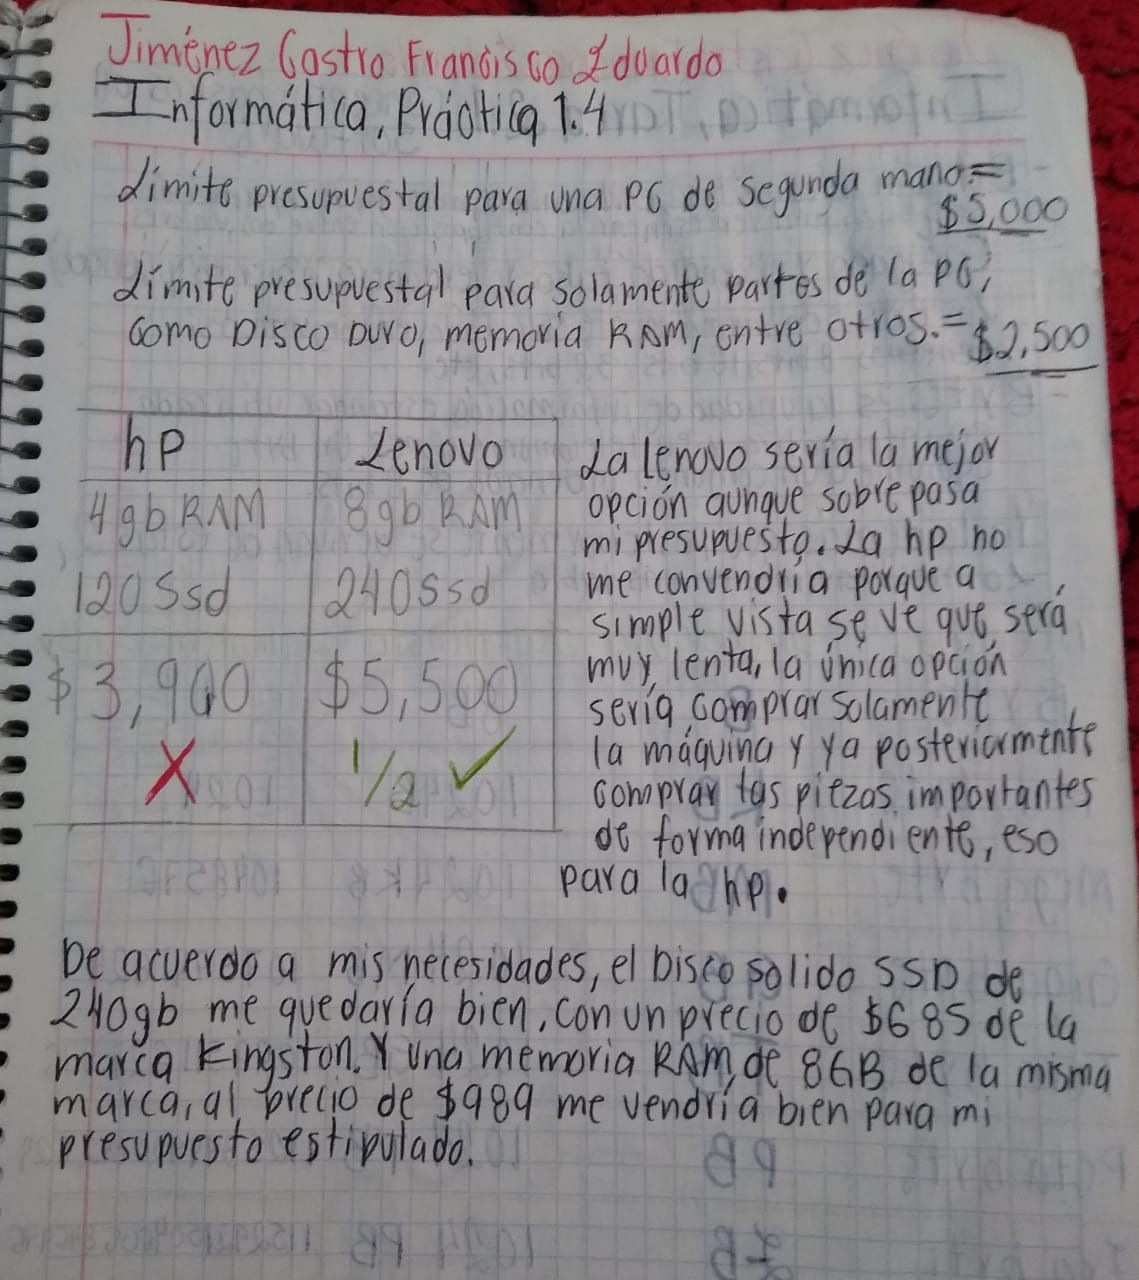 Jiménez Castro Francisco Eduardo
Informática, Práctica 1.4
Límite presupuestal para una PC de segunda mano=
$5,000
Límite presupuestal para solamente partes de la PC,
como Disco Duro, memoria RAM, entre otros.= $2,500
hp Lenovo
4gb RAM 8gb RAM
120 Ssd 240 Ssd
$3,900 $5,500
X 1/2 ✓
La lenovo sería la mejor
opción aunque sobrepasa
mi presupuesto. La hp no
me convendría porque a
simple vista se ve que será
muy lenta, la única opción
sería comprar solamente
la máquina y ya posteriormente
comprar las piezas importantes
de forma independiente, eso
para la hp.
De acuerdo a mis necesidades, el Disco solido SSD de
240gb me quedaría bien, con un precio de $685 de la
marca Kingston. Y una memoria RAM, de 8GB de la misma
marca, al precio de $989 me vendría bien para mi
presupuesto estipulado.